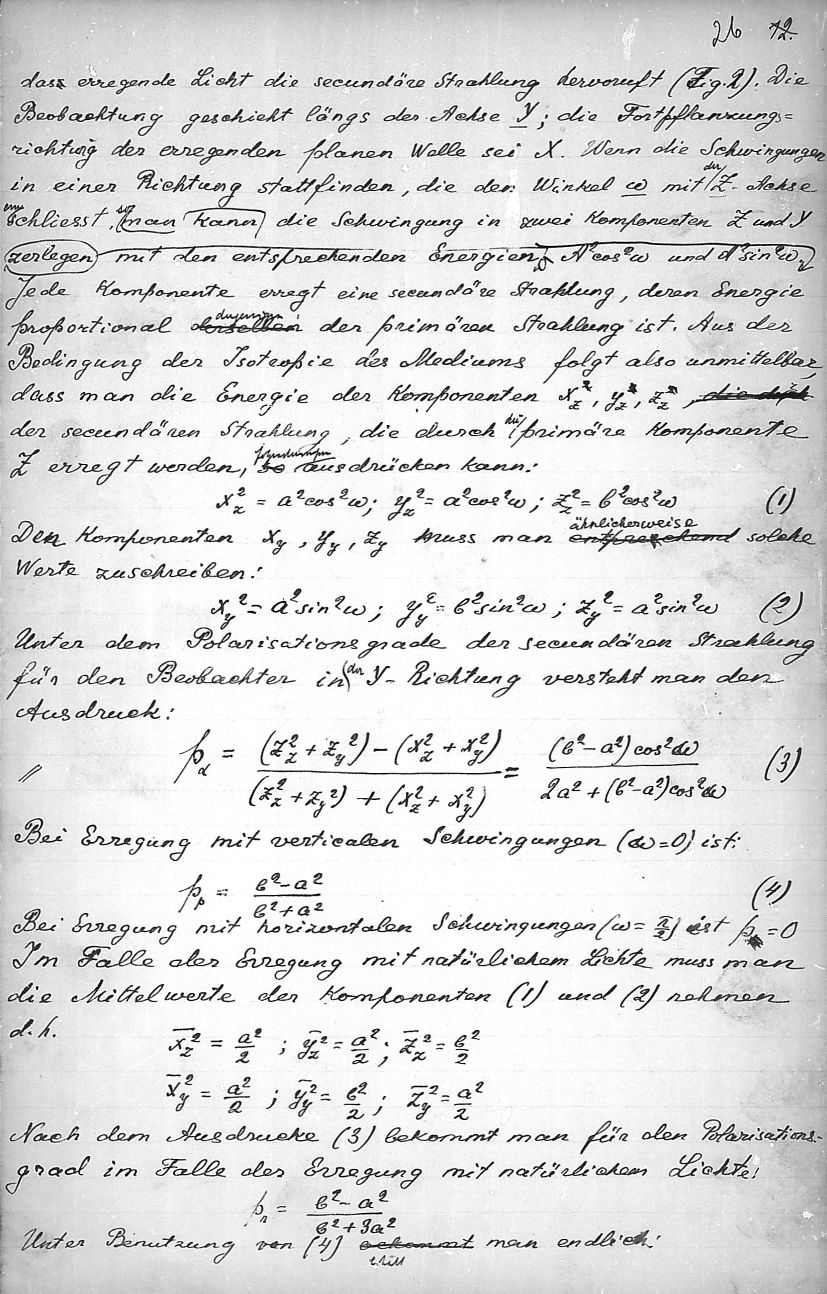 26 12.
dass erregende Licht die secundäre Strahlung hervorruft (Fig. 2). Die
Beobachtung geschieht längs der Achse Y; die Fortpflanzungs=
richtung der erregenden planen Welle sei X. Wenn die Schwingungen
in einer Richtung stattfinden, die den Winkel ω mit der Z-Achse
einschliesst, so man kann die Schwingung in zwei Komponenten Z und Y
zerlegen mit den entsprechenden Energien A²cos²ω und A²sin²ω.
Jede Komponente erregt eine secundäre Strahlung, deren Energie
proportional derselben derjenigen der primären Strahlung ist. Aus der
Bedingung der Isotropie des Mediums folgt also unmittelbar,
dass man die Energie der Komponenten x_z², y_z², z_z², die durch
der secundären Strahlung, die durch die primäre Komponente
Z erregt werden, so folgendermassen ausdrücken kann:
x_z² = a²cos²ω; y_z² = a²cos²ω; z_z² = b²cos²ω (1)
Den Komponenten x_y, y_y, z_y muss man entsprechend ähnlicherweise solche
Werte zuschreiben:
x_y² = a²sin²ω; y_y² = b²sin²ω; z_y² = a²sin²ω (2)
Unter dem Polarisationsgrade der secundären Strahlung
für den Beobachter in der Y-Richtung versteht man den
Ausdruck:
p_α = ((z_z² + z_y²) - (x_z² + x_y²)) / ((z_z² + z_y²) + (x_z² + x_y²)) = ((b² - a²)cos²ω) / (2a² + (b² - a²)cos²ω) (3)
Bei Erregung mit verticalen Schwingungen (ω=0) ist:
p_p = (b² - a²) / (b² + a²) (4)
Bei Erregung mit horizontalen Schwingungen (ω = π/2) ist p = 0
Im Falle der Erregung mit natürlichem Lichte muss man
die Mittelwerte der Komponenten (1) und (2) nehmen
d.h.
x̄_z² = a²/2; ȳ_z² = a²/2; z̄_z² = b²/2
x̄_y² = a²/2; ȳ_y² = b²/2; z̄_y² = a²/2
Nach dem Ausdrucke (3) bekommt man für den Polarisations-
grad im Falle der Erregung mit natürlichem Lichte:
p_n = (b² - a²) / (b² + 3a²)
Unter Benutzung von (4) bekommt erhält man endlich: